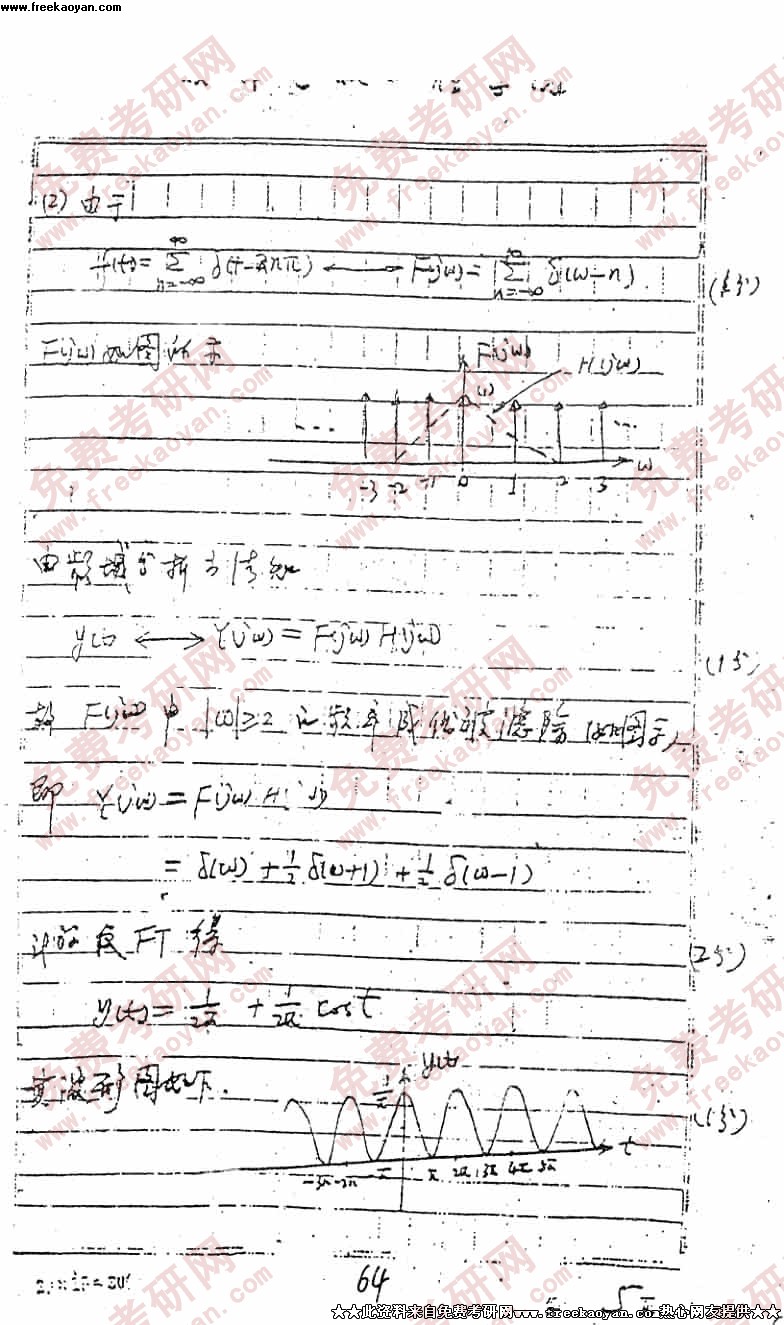 www.freekaoyan.com
(2) 由于
f(t)=∑_{n=-∞}^{∞} δ(t-2nπ) ⟷ F(jω)=∑_{n=-∞}^{∞} δ(ω-n)
F(jω)如图所示
F(jω)
H(jω)
(1)
... ...
-3 -2 -1 0 1 2 3 ω
由频域分析方法知
y(t) ⟷ Y(jω)=F(jω)H(jω)
(1分)
故 F(jω)中 |ω|≥2 的频率成份被滤除(如图示)
即 Y(jω)=F(jω)H(jω)
=δ(ω)+1/2 δ(ω+1)+1/2 δ(ω-1)
反FT得
(2分)
y(t)=1/2π + 1/2π cost
其波形图如下.
y(t)
1/π
(1分)
t
-3π -2π -π π 2π 3π 4π 5π
64
★★此资料来自免费考研网www.freekaoyan.com热心网友提供★★
免费考研网
www.freekaoyan.com